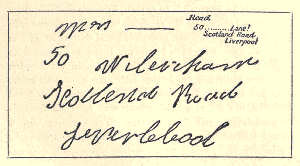 Mrs ——
Read
50 ........ Lane?
Scotland Road,
Liverpool
50
Scotland Road
Leverlebool